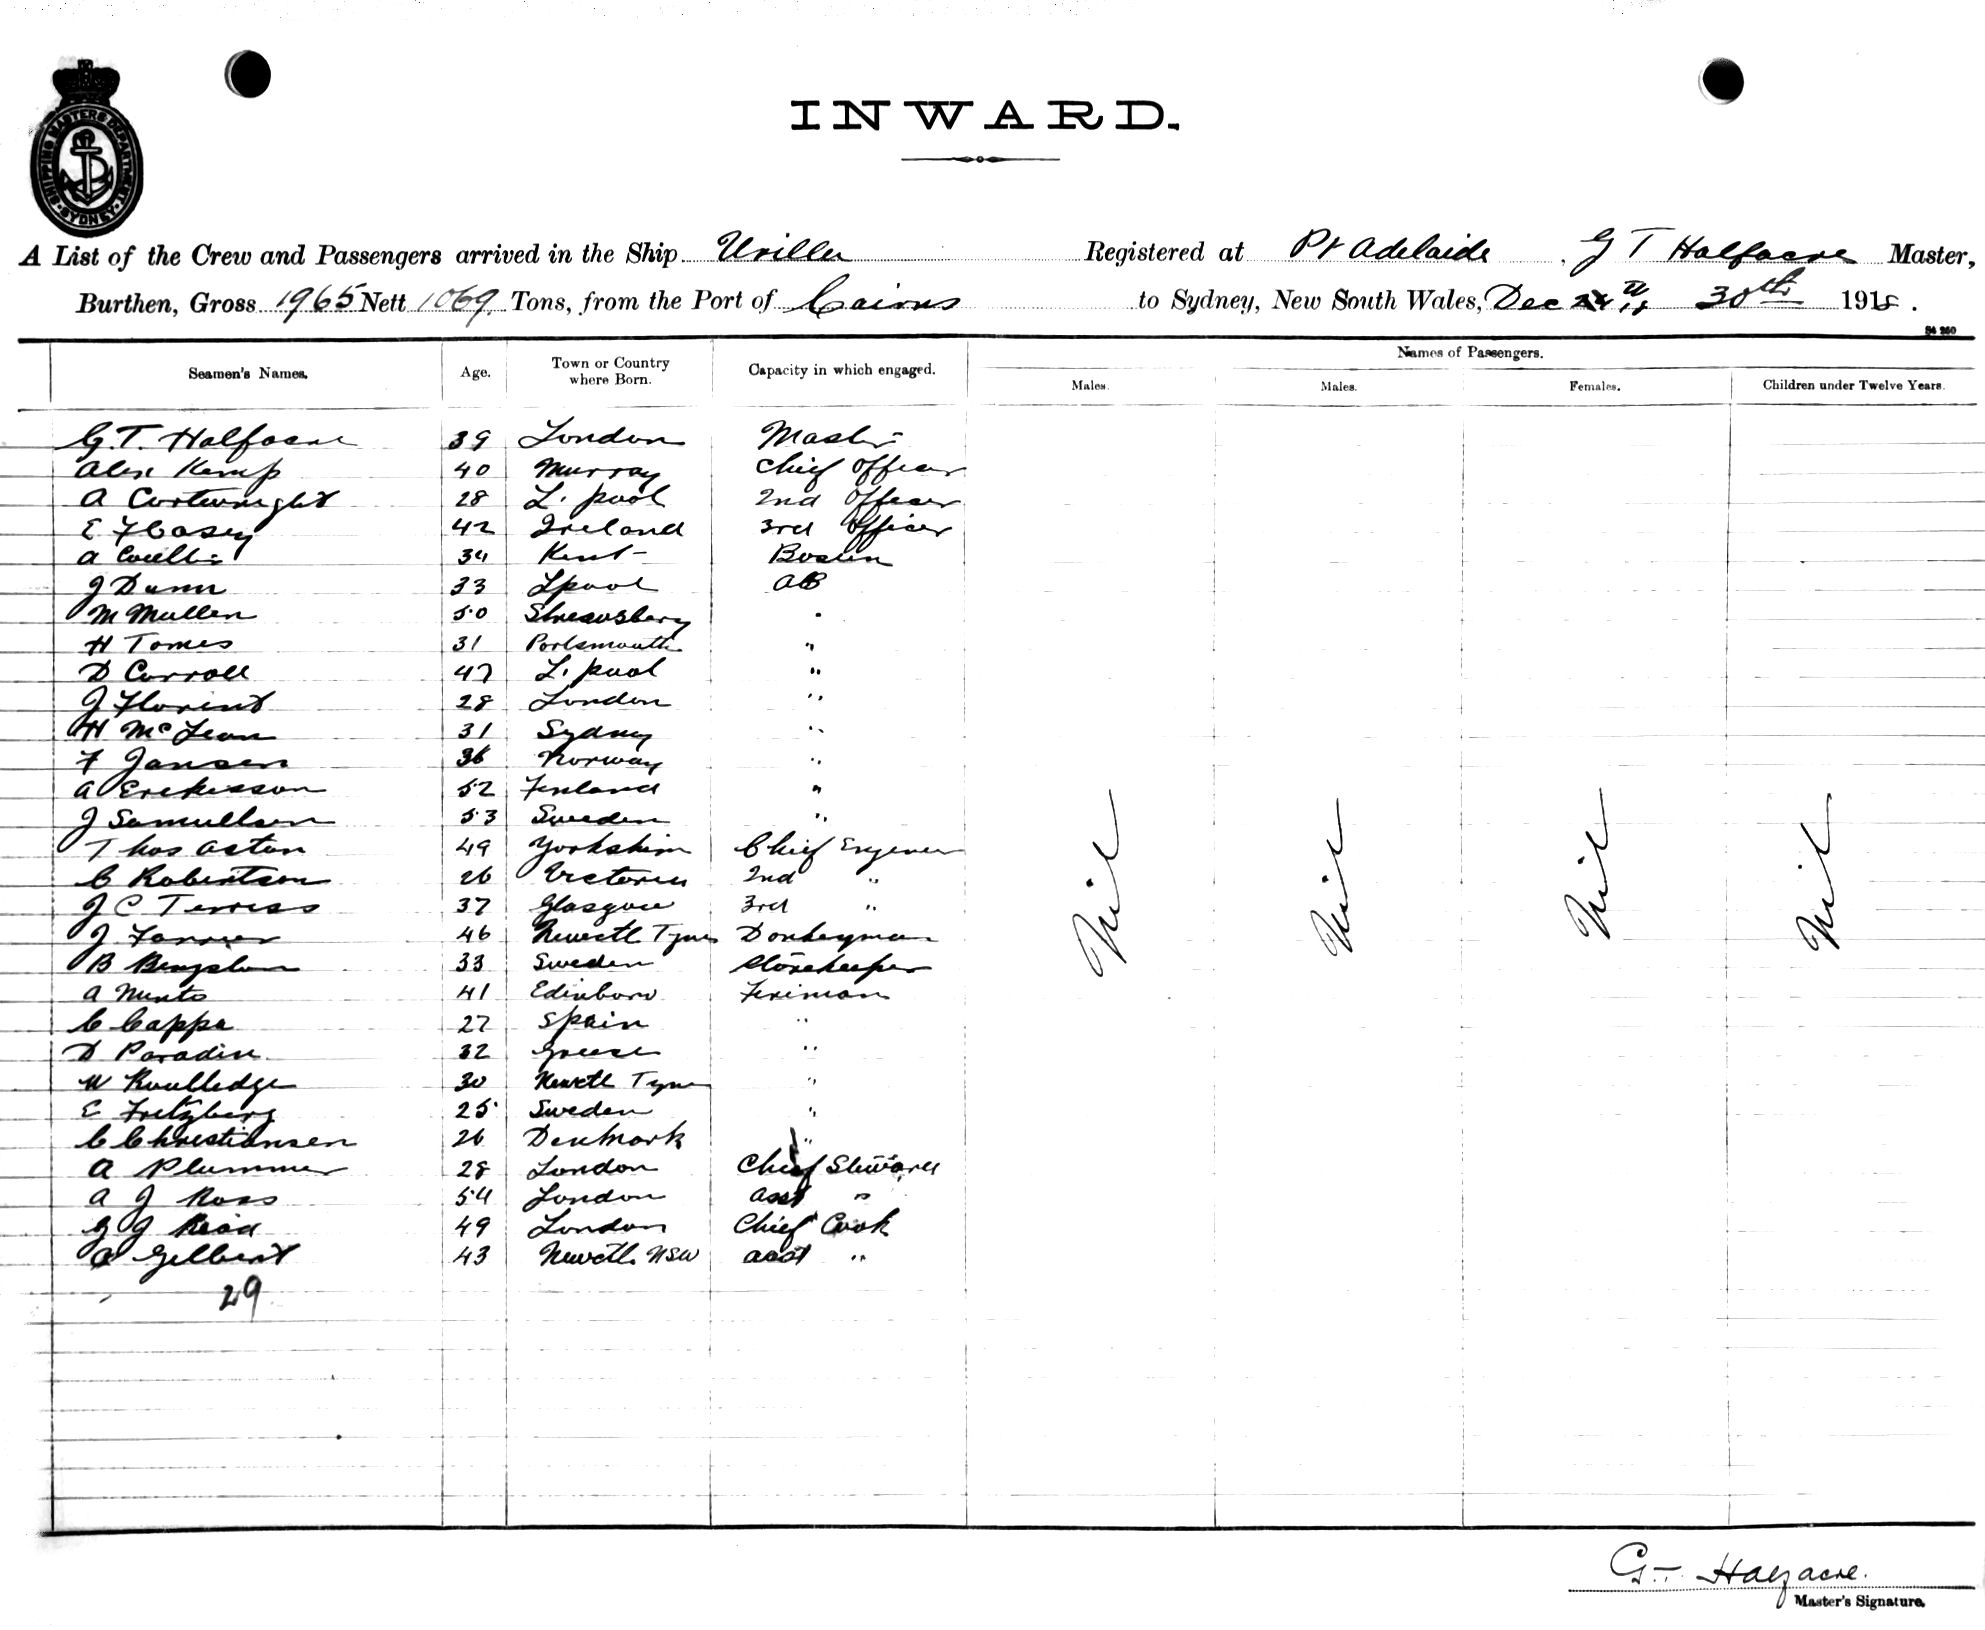 SHIPPING MASTERS DEPARTMENT
SYDNEY
INWARD.
A List of the Crew and Passengers arrived in the Ship Urilla Registered at Pt Adelaide, G T Halfacre Master,
Burthen, Gross 1965 Nett 1069 Tons, from the Port of Cairns to Sydney, New South Wales, Dec 30th 1918.
Names of Passengers.
Seamen's Names. Age. Town or Country where Born. Capacity in which engaged. Males. Males. Females. Children under Twelve Years.
G. T. Halfacre 39 London Master
Alex Kemp 40 Murray Chief Officer
A Cartwright 28 L'pool 2nd Officer
E F Casey 42 Ireland 3rd Officer
A 34 Kent Bosun
J Dunn 33 Lpool AB
M Mullen 50 Shrewsbery "
H Tomes 31 Portsmouth "
D Carroll 47 L'pool "
J Florent 28 London "
H McLean 31 Sydney "
F Jansen 36 Norway "
A Erickesson 52 Finland "
J Samuelsen 53 Sweden "
Thos Aston 49 Yorkshire Chief Engineer
C Robertson 26 Victoria 2nd "
J C Terriss 37 Glasgow 3rd "
J 46 Newctl Tyne Donkeyman
B Bengston 33 Sweden Storekeeper
A Minto 41 Edinboro Fireman
C Cappa 27 Spain "
D Paradin 32 Greese "
W Routledge 30 Newctl Tyne "
E Fritzberg 25 Sweden "
C Christiansen 26 Denmark "
A Plummer 28 London Chief Steward
A J Ross 54 London Asst "
G J Read 49 London Chief Cook
A Gilbert 43 Newctl. NSW Asst "
29
Nil Nil Nil Nil
G T Halfacre.
Master's Signature.